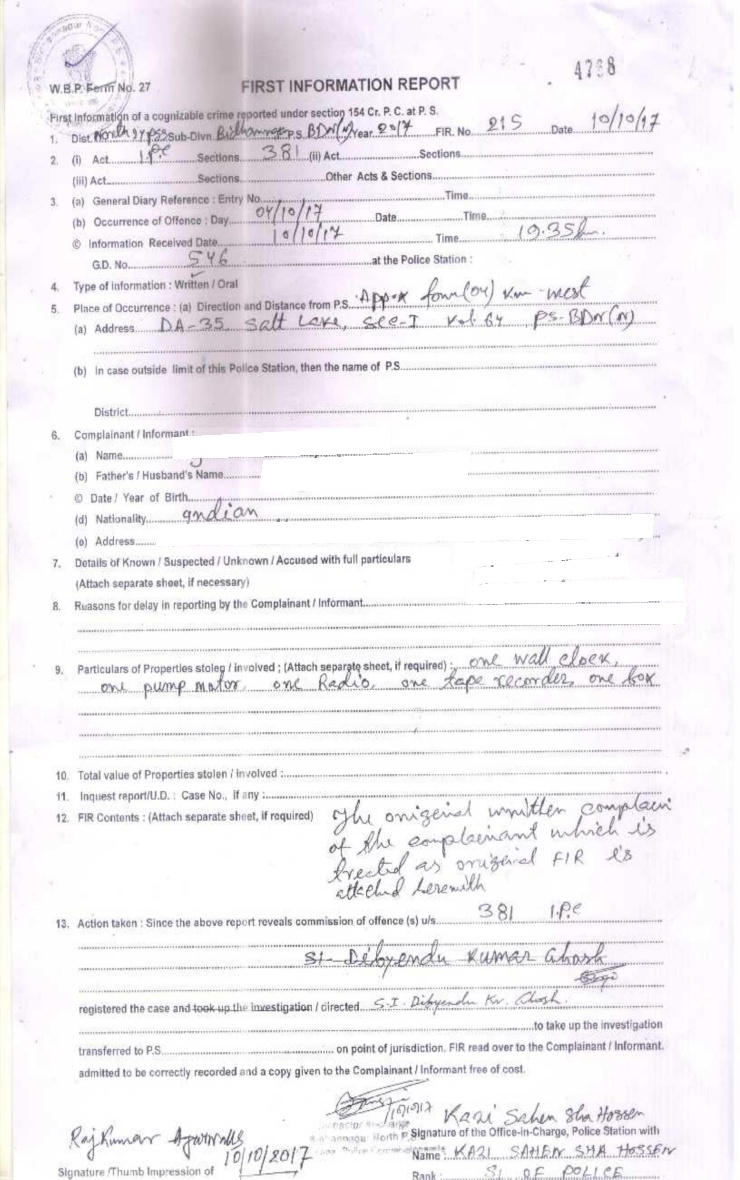 4788
W.B.P. Form No. 27
FIRST INFORMATION REPORT
First Information of a cognizable crime reported under section 154 Cr. P. C. at P. S.
1. Dist. North 24 pgs Sub-Divn. Bidhannagar P.S. BDN(N) Year 2017 FIR. No. 215 Date 10/10/17
2. (i) Act I.P.C Sections 381 (ii) Act Sections
(iii) Act Sections Other Acts & Sections
3. (a) General Diary Reference : Entry No. Time
(b) Occurrence of Offence : Day 04/10/17 Date Time
© Information Received Date 10/10/17 Time 19.35 hr.
G.D. No. 546 at the Police Station :
4. Type of information : Written / Oral
5. Place of Occurrence : (a) Direction and Distance from P.S. Appox four(04) km west
(a) Address DA-35, Salt Lake, Sec-I Kol 64 PS-BDN(N)
(b) In case outside limit of this Police Station, then the name of P.S.
District
6. Complainant / Informant :
(a) Name
(b) Father's / Husband's Name
© Date / Year of Birth
(d) Nationality Indian
(e) Address
7. Details of Known / Suspected / Unknown / Accused with full particulars
(Attach separate sheet, if necessary)
8. Reasons for delay in reporting by the Complainant / Informant
9. Particulars of Properties stolen / involved ; (Attach separate sheet, if required) : one wall clock,
one pump motor, one Radio, one tape recorder, one box
10. Total value of Properties stolen / involved :
11. Inquest report/U.D. : Case No., if any :
12. FIR Contents : (Attach separate sheet, if required) The original written complain
of the complainant which is
treated as original FIR is
attached herewith
13. Action taken : Since the above report reveals commission of offence (s) u/s. 381 I.P.C
SI- Dibyendu Kumar Ghosh
registered the case and took up the investigation / directed S.I. Dibyendu Kr. Ghosh.
to take up the investigation
transferred to P.S. on point of jurisdiction. FIR read over to the Complainant / Informant.
admitted to be correctly recorded and a copy given to the Complainant / Informant free of cost.
10/10/17
Kazi Sahen Sha Hossen
Signature of the Office-in-Charge, Police Station with
RajKumar Agarwalla
10/10/2017
Name : KAZI SAHEN SHA HOSSEN
Signature /Thumb Impression of
Rank : SI OF POLICE